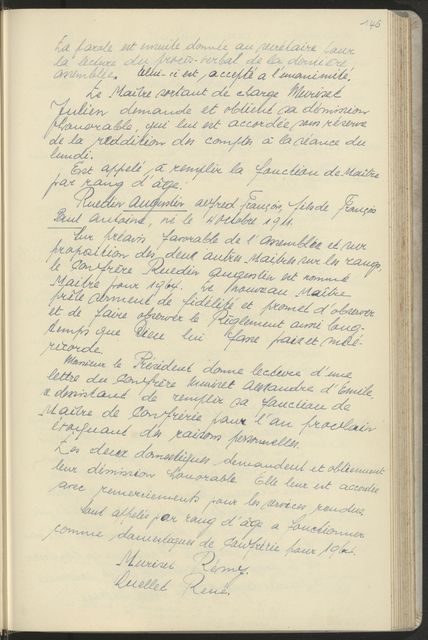 146
La parole est ensuite donnée au secrétaire pour
la lecture du procès-verbal de la dernière
assemblée. Celui-ci est accepté à l'unanimité.
Le Maître sortant de charge Muriset
Julien demande et obtient sa démission
honorable, qui lui est accordée sous réserve
de la reddition des comptes à la séance du
lundi.
Est appelé à remplir la fonction de Maître
par rang d'âge:
Ruedin Augustin Alfred François fils de François
Paul Antoine, né le 4 octobre 1911.
Sur préavis favorable de l'assemblée et sur
proposition des deux autres Maîtres sur les rangs,
le Confrère Ruedin Augustin est nommé
Maître pour 1964. Le nouveau Maître
prête serment de fidélité et promet d'observer
et de faire observer le Règlement aussi long-
temps que Dieu lui fasse paix et misé-
ricorde.
Monsieur le Président donne lecture d'une
lettre du Confrère Muriset Alexandre d'Emile,
se désistant de remplir sa fonction de
Maître de Confrérie pour l'an prochain
évoquant des raisons personnelles.
Les deux domestiques demandent et obtiennent
leur démission honorable. Elle leur est accordée
avec remerciements pour les services rendus.
Sont appelés par rang d'âge à fonctionner
comme domestiques de Confrérie pour 1964.
Muriset Rémy.
Quellet René.